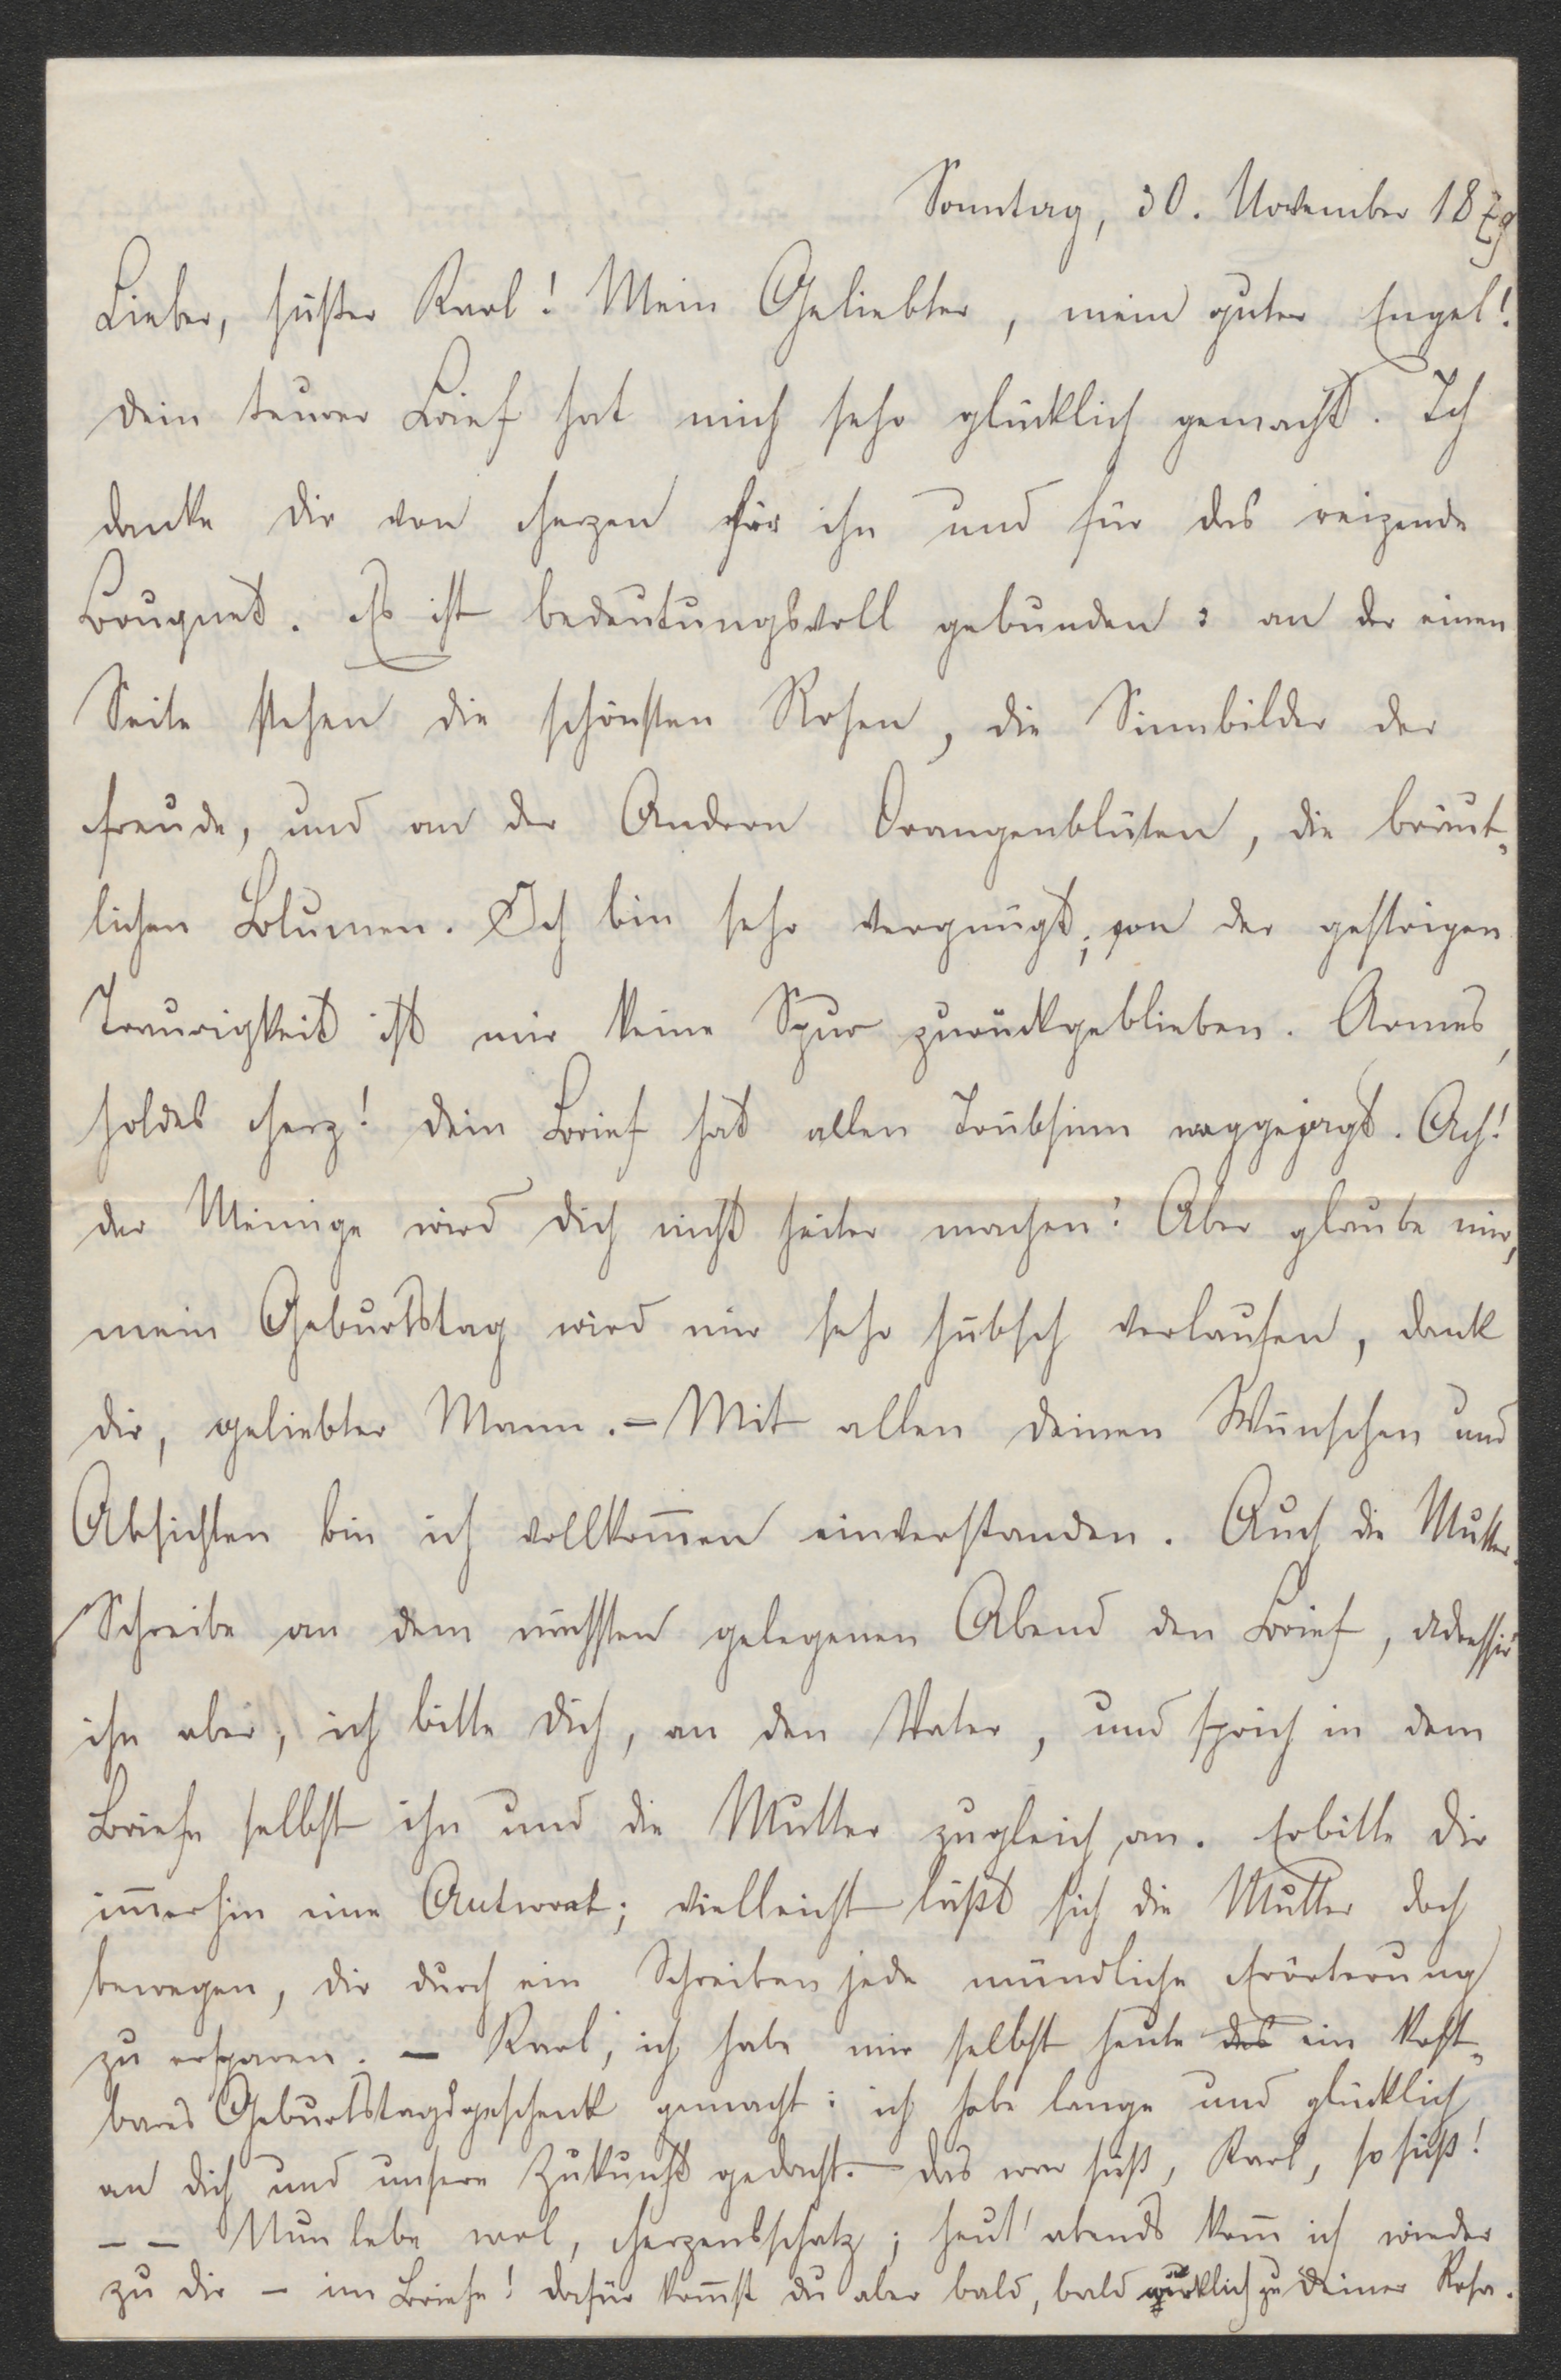 Sonntag, 30. November 1879
Lieber, süßer Karl! Mein Geliebter, mein guter Engel!
dein teurer Brief hat mich sehr glücklich gemacht. Ich
danke dir von Herzen für ihn und für das reizende
Bouquet. Es ist bedeutungsvoll gebunden: an der einen
Seite stehen die schönsten Rosen, die Sinnbilder der
Freude, und an der Andern Orangenblüten, die bräut-
lichen Blumen. Ich bin sehr vergnügt; von der gestrigen
Traurigkeit ist mir keine Spur zurückgeblieben. Armes,
holdes Herz! dein Brief hat allen Trübsinn weggejagt. Ach!
der Meinige wird dich nicht heiter machen! Aber glaube mir,
mein Geburtstag wird mir sehr hübsch verlaufen, dank
dir, geliebter Mann. – Mit allen deinen Wünschen und
Absichten bin ich vollkom̅en einverstanden. Auch die Mutter.
Schreibe an dem nächsten gelegenen Abend den Brief, adressir'
ihn aber, ich bitte dich, an den Vater, und sprich in dem
Briefe selbst ihn und die Mutter zugleich an. Erbitte dir
im̅erhin eine Antwort; vielleicht läßt sich die Mutter doch
bewegen, dir durch ein Schreiben jede mündliche Erörterung
zu ersparen. – Karl, ich habe mir selbst heute das ein kost-
bares Geburtstagsgeschenk gemacht: ich habe lange und glücklich
an dich und unsere Zukunft gedacht. – das war süß, Karl, so süß!
– – Nun lebe wol, Herzensschatz; heut' abends kom̅ ich wieder
zu dir – im Briefe! dafür kom̅st du aber bald, bald wirklich zu deiner Rosa.